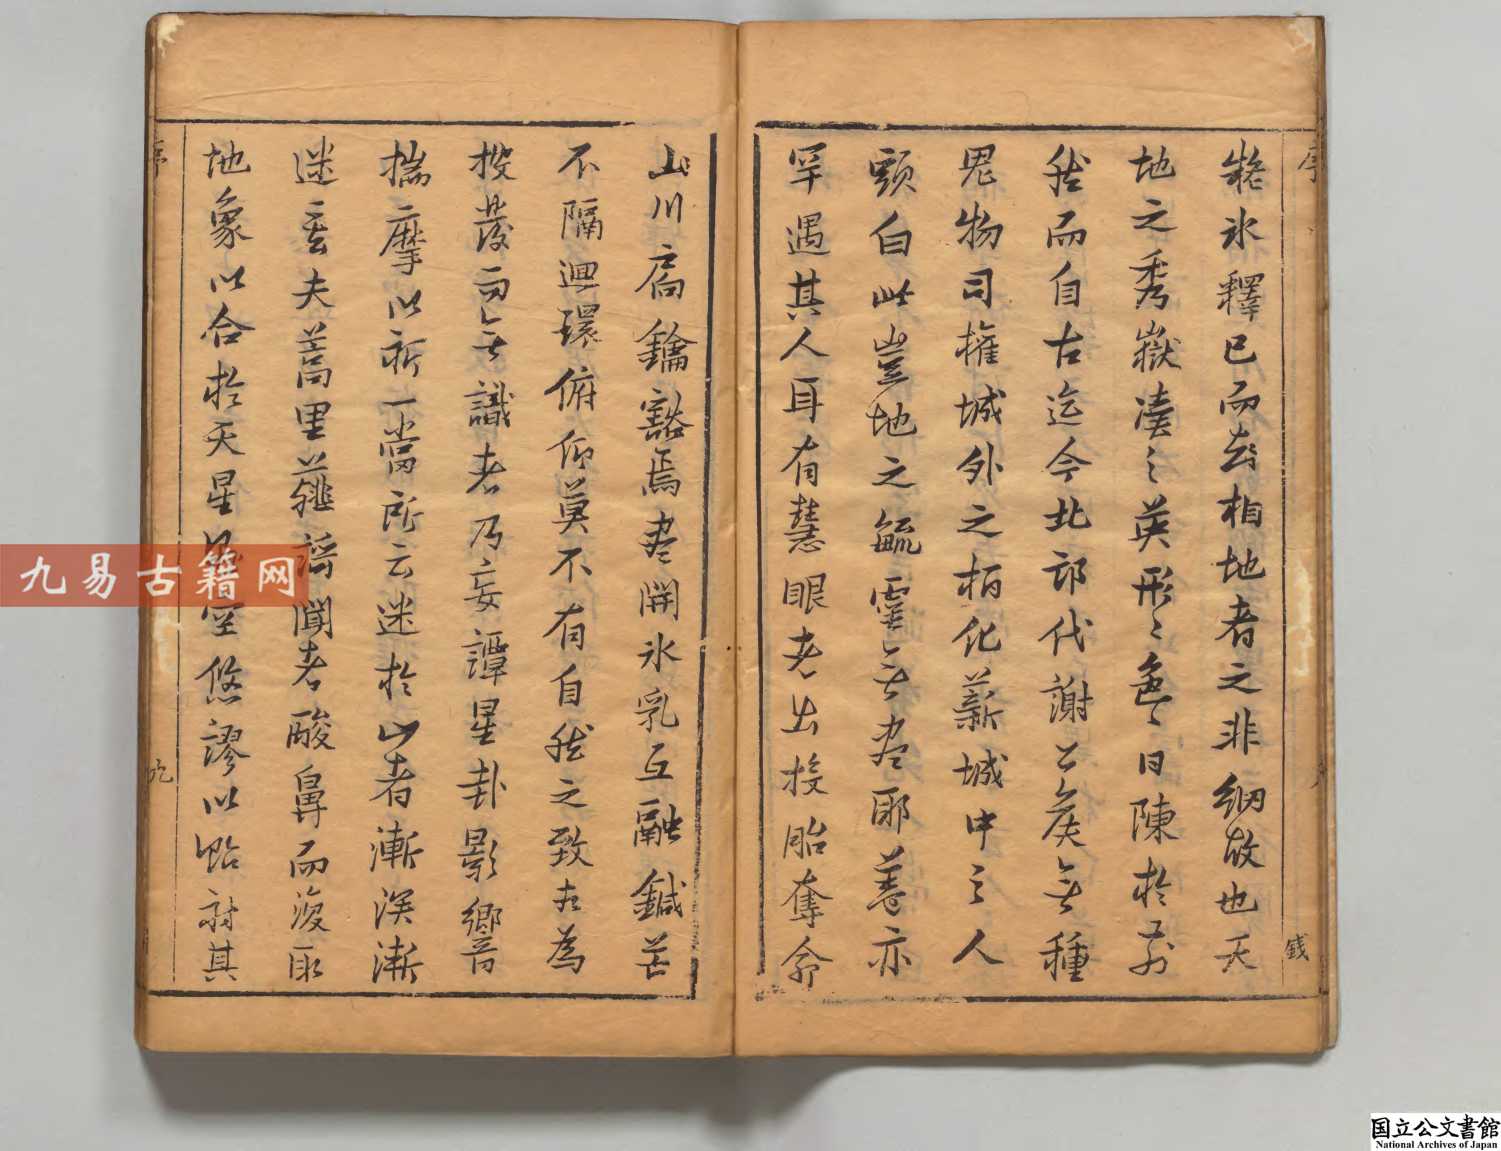 序
凝氷釋已而去相地者之非綱故也天
地之秀嶽凄之英形〻色〻日陳於前
然而自古迄今北邙代謝公矦無種
鬼物司権城外之栢化薪城中之人
頭白此豈地之毓靈無盡耶葢亦
罕遇其人耳有慧眼者出投胎奪命
錢
山川扃鑰豁焉盡開氷乳互融鍼芒
不隔廻環俯仰莫不有自然之致尤為
披發而無識者乃妄譚星卦影響
揣摩以祈一當所云迷於山者漸深漸
迷去夫蒿里薤謌聞者酸鼻而復取
地象以合於天星空悠謬以貽討其
序
九易古籍网
国立公文書館
National Archives of Japan